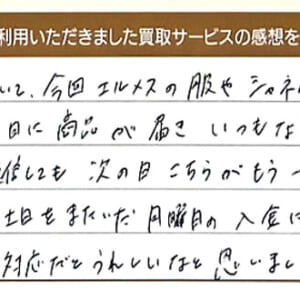 利用いただきました買取サービスの感想を
いて、今回エルメスの服やシャネル
日に商品が届き いつもな
しても 次の日 こちらがもう一
土日をまたいだ月曜日の入金に
対応だとうれしいなと思いまし